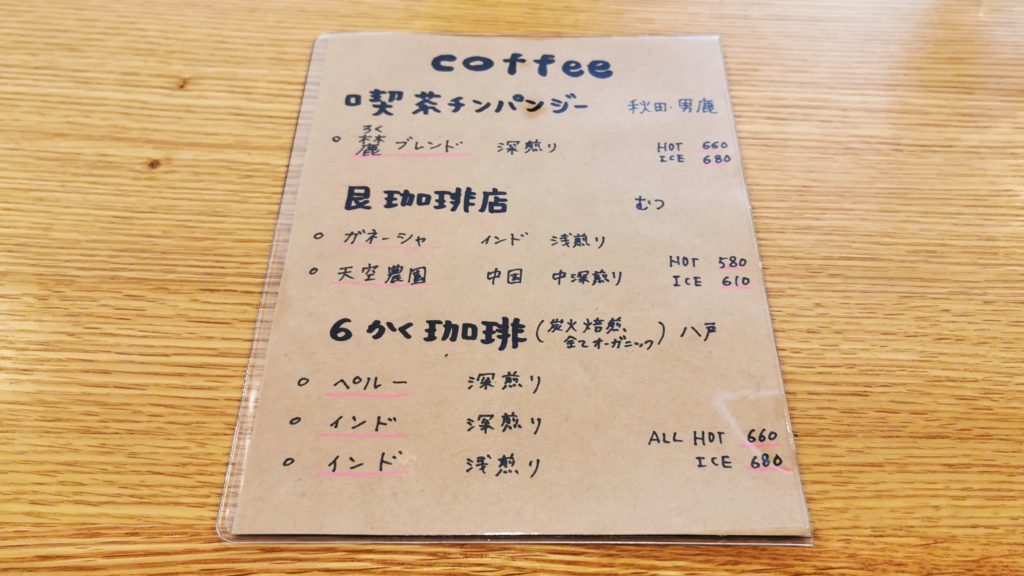 coffee
喫茶チンパンジー 秋田・男鹿
ろく
○ 麓ブレンド 深煎り HOT 660
ICE 680
艮珈琲店 むつ
○ ガネーシャ インド 浅煎り
○ 天空農園 中国 中深煎り HOT 580
ICE 610
6かく珈琲(炭火焙煎、全てオーガニック) 八戸
○ ペルー 深煎り
○ インド 深煎り
○ インド 浅煎り ALL HOT 660
ICE 680